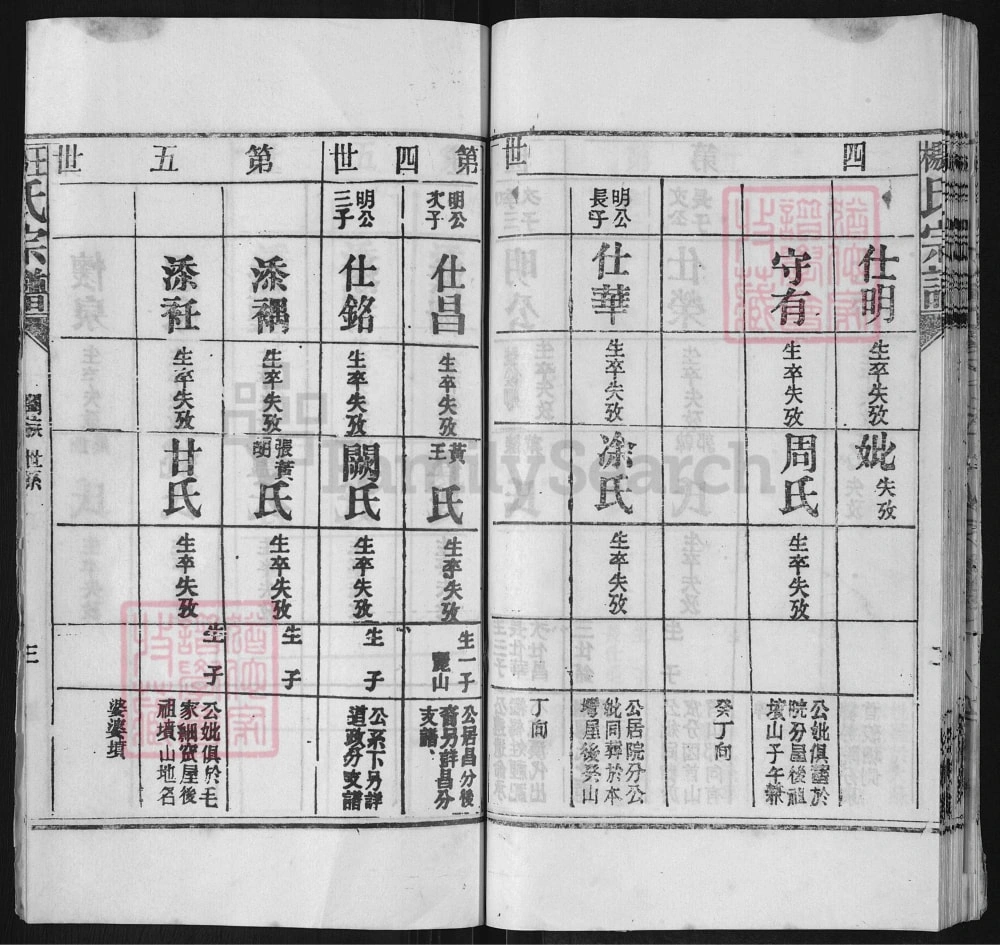 楊氏宗譜
四世
仕明
生卒失攷
妣失攷
守有
生卒失攷
周氏
生卒失攷
公妣俱塟於
院分屋後祖
墳山子午兼
癸丁向
明公
長子
仕華
生卒失攷
凃氏
生卒失攷
公居院分公
妣同葬於本
灣屋後癸山
丁向
第四世
明公
次子
仕昌
生卒失攷
黃王氏
生卒失攷
生一子
寵山
公居昌分後
裔另詳昌分
支譜
明公
三子
仕銘
生卒失攷
闕氏
生卒失攷
生子
公系下另詳
道政分支譜
第五世
添禑
生卒失攷
張黃胡氏
生卒失攷
生子
添祍
生卒失攷
甘氏
生卒失攷
生子
公妣俱於毛
家細窩屋後
祖墳山地名
婆婆墳
氏宗譜
三
FamilySearch